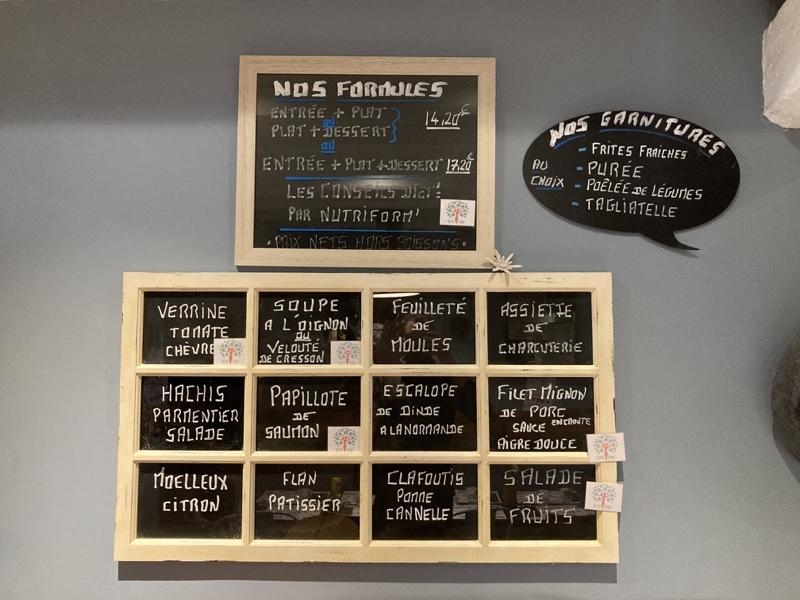 NOS FORMULES
ENTRÉE + PLAT
ou
PLAT + DESSERT
14,20€
ou
ENTRÉE + PLAT + DESSERT 17,20€
LES CONSEILS DIET'
PAR NUTRIFORM'
• PRIX NETS HORS BOISSONS •
NOS GARNITURES
AU CHOIX
- FRITES FRAÎCHES
- PURÉE
- POÊLÉE DE LÉGUMES
- TAGLIATELLE
VERRINE
TOMATE
CHÈVRE
SOUPE
A L'OIGNON
ou
VELOUTÉ
DE CRESSON
FEUILLETÉ
DE
MOULES
ASSIETTE
DE
CHARCUTERIE
HACHIS
PARMENTIER
SALADE
PAPILLOTE
DE
SAUMON
ESCALOPE
DE DINDE
A LA NORMANDE
FILET MIGNON
DE PORC
EN CROUTE
SAUCE
AIGRE DOUCE
MOELLEUX
CITRON
FLAN
PATISSIER
CLAFOUTIS
POMME
CANNELLE
SALADE
DE
FRUITS